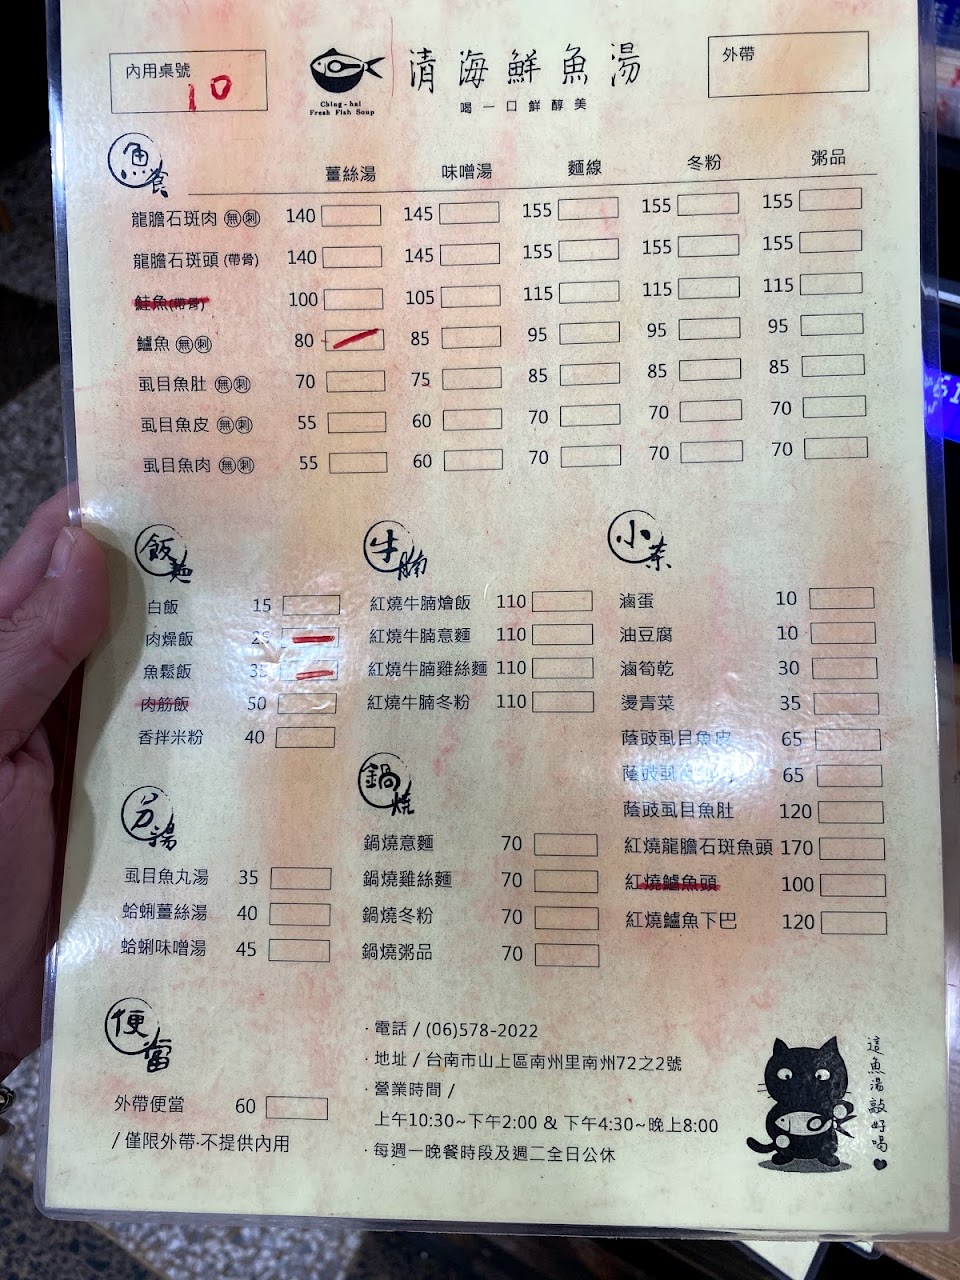 內用桌號
10
Ching-hai
Fresh Fish Soup
清海鮮魚湯
喝一口鮮醇美
外帶
魚食
薑絲湯 味噌湯 麵線 冬粉 粥品
龍膽石斑肉 無刺 140 145 155 155 155
龍膽石斑頭 (帶骨) 140 145 155 155 155
鮭魚(帶骨) 100 105 115 115 115
鱸魚 無刺 80 85 95 95 95
虱目魚肚 無刺 70 75 85 85 85
虱目魚皮 無刺 55 60 70 70 70
虱目魚肉 無刺 55 60 70 70 70
飯麵
白飯 15
肉燥飯 25
魚鬆飯 35
肉筋飯 50
香拌米粉 40
牛腩
紅燒牛腩燴飯 110
紅燒牛腩意麵 110
紅燒牛腩雞絲麵 110
紅燒牛腩冬粉 110
小菜
滷蛋 10
油豆腐 10
滷筍乾 30
燙青菜 35
蔭豉虱目魚皮 65
蔭豉虱目 65
蔭豉虱目魚肚 120
紅燒龍膽石斑魚頭 170
紅燒鱸魚頭 100
紅燒鱸魚下巴 120
湯
虱目魚丸湯 35
蛤蜊薑絲湯 40
蛤蜊味噌湯 45
鍋燒
鍋燒意麵 70
鍋燒雞絲麵 70
鍋燒冬粉 70
鍋燒粥品 70
便當
外帶便當 60
/ 僅限外帶·不提供內用
· 電話 / (06)578-2022
· 地址 / 台南市山上區南州里南州72之2號
· 營業時間 /
上午10:30~下午2:00 & 下午4:30~晚上8:00
· 每週一晚餐時段及週二全日公休
這魚湯敲好喝